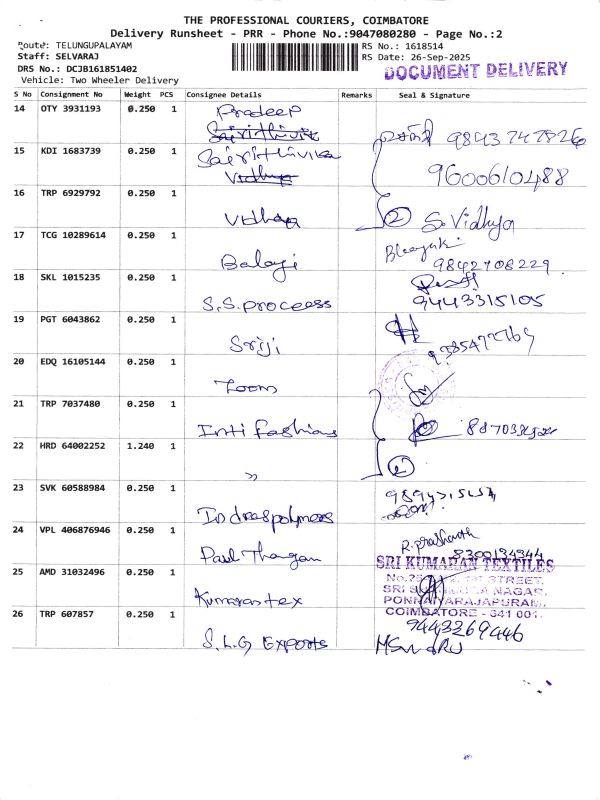 THE PROFESSIONAL COURIERS, COIMBATORE
Delivery Runsheet - PRR - Phone No.:9047080280 - Page No.:2
Route: TELUNGUPALAYAM
Staff: SELVARAJ
DRS No.: DCJB161851402
Vehicle: Two Wheeler Delivery
RS No.: 1618514
RS Date: 26-Sep-2025
DOCUMENT DELIVERY
S No Consignment No Weight PCS Consignee Details Remarks Seal & Signature
14 OTY 3931193 0.250 1 Pradeep
Sairithivik 98437 47826
15 KDI 1683739 0.250 1 Sairithivika
Vidhya 9600610488
16 TRP 6929792 0.250 1 Vidhya 2 S. Vidhya
17 TCG 10289614 0.250 1 Balaji 9842708229
18 SKL 1015235 0.250 1 S.S. proceess 9443315105
19 PGT 6043862 0.250 1 Sriji
20 EDQ 16105144 0.250 1 Zoom
21 TRP 7037480 0.250 1 Inti fashions
22 HRD 64002252 1.240 1 " 2
23 SVK 60588984 0.250 1 Indraspolymers
24 VPL 406876946 0.250 1 Paul Thangam R. prashanth
8300134344
25 AMD 31032496 0.250 1 Kumaran tex
SRI KUMARAN TEXTILES
1ST STREET,
NAGAR,
PONNAIYARAJAPURAM,
COIMBATORE - 641 001.
26 TRP 607857 0.250 1 S.L.G Exports 9443269446